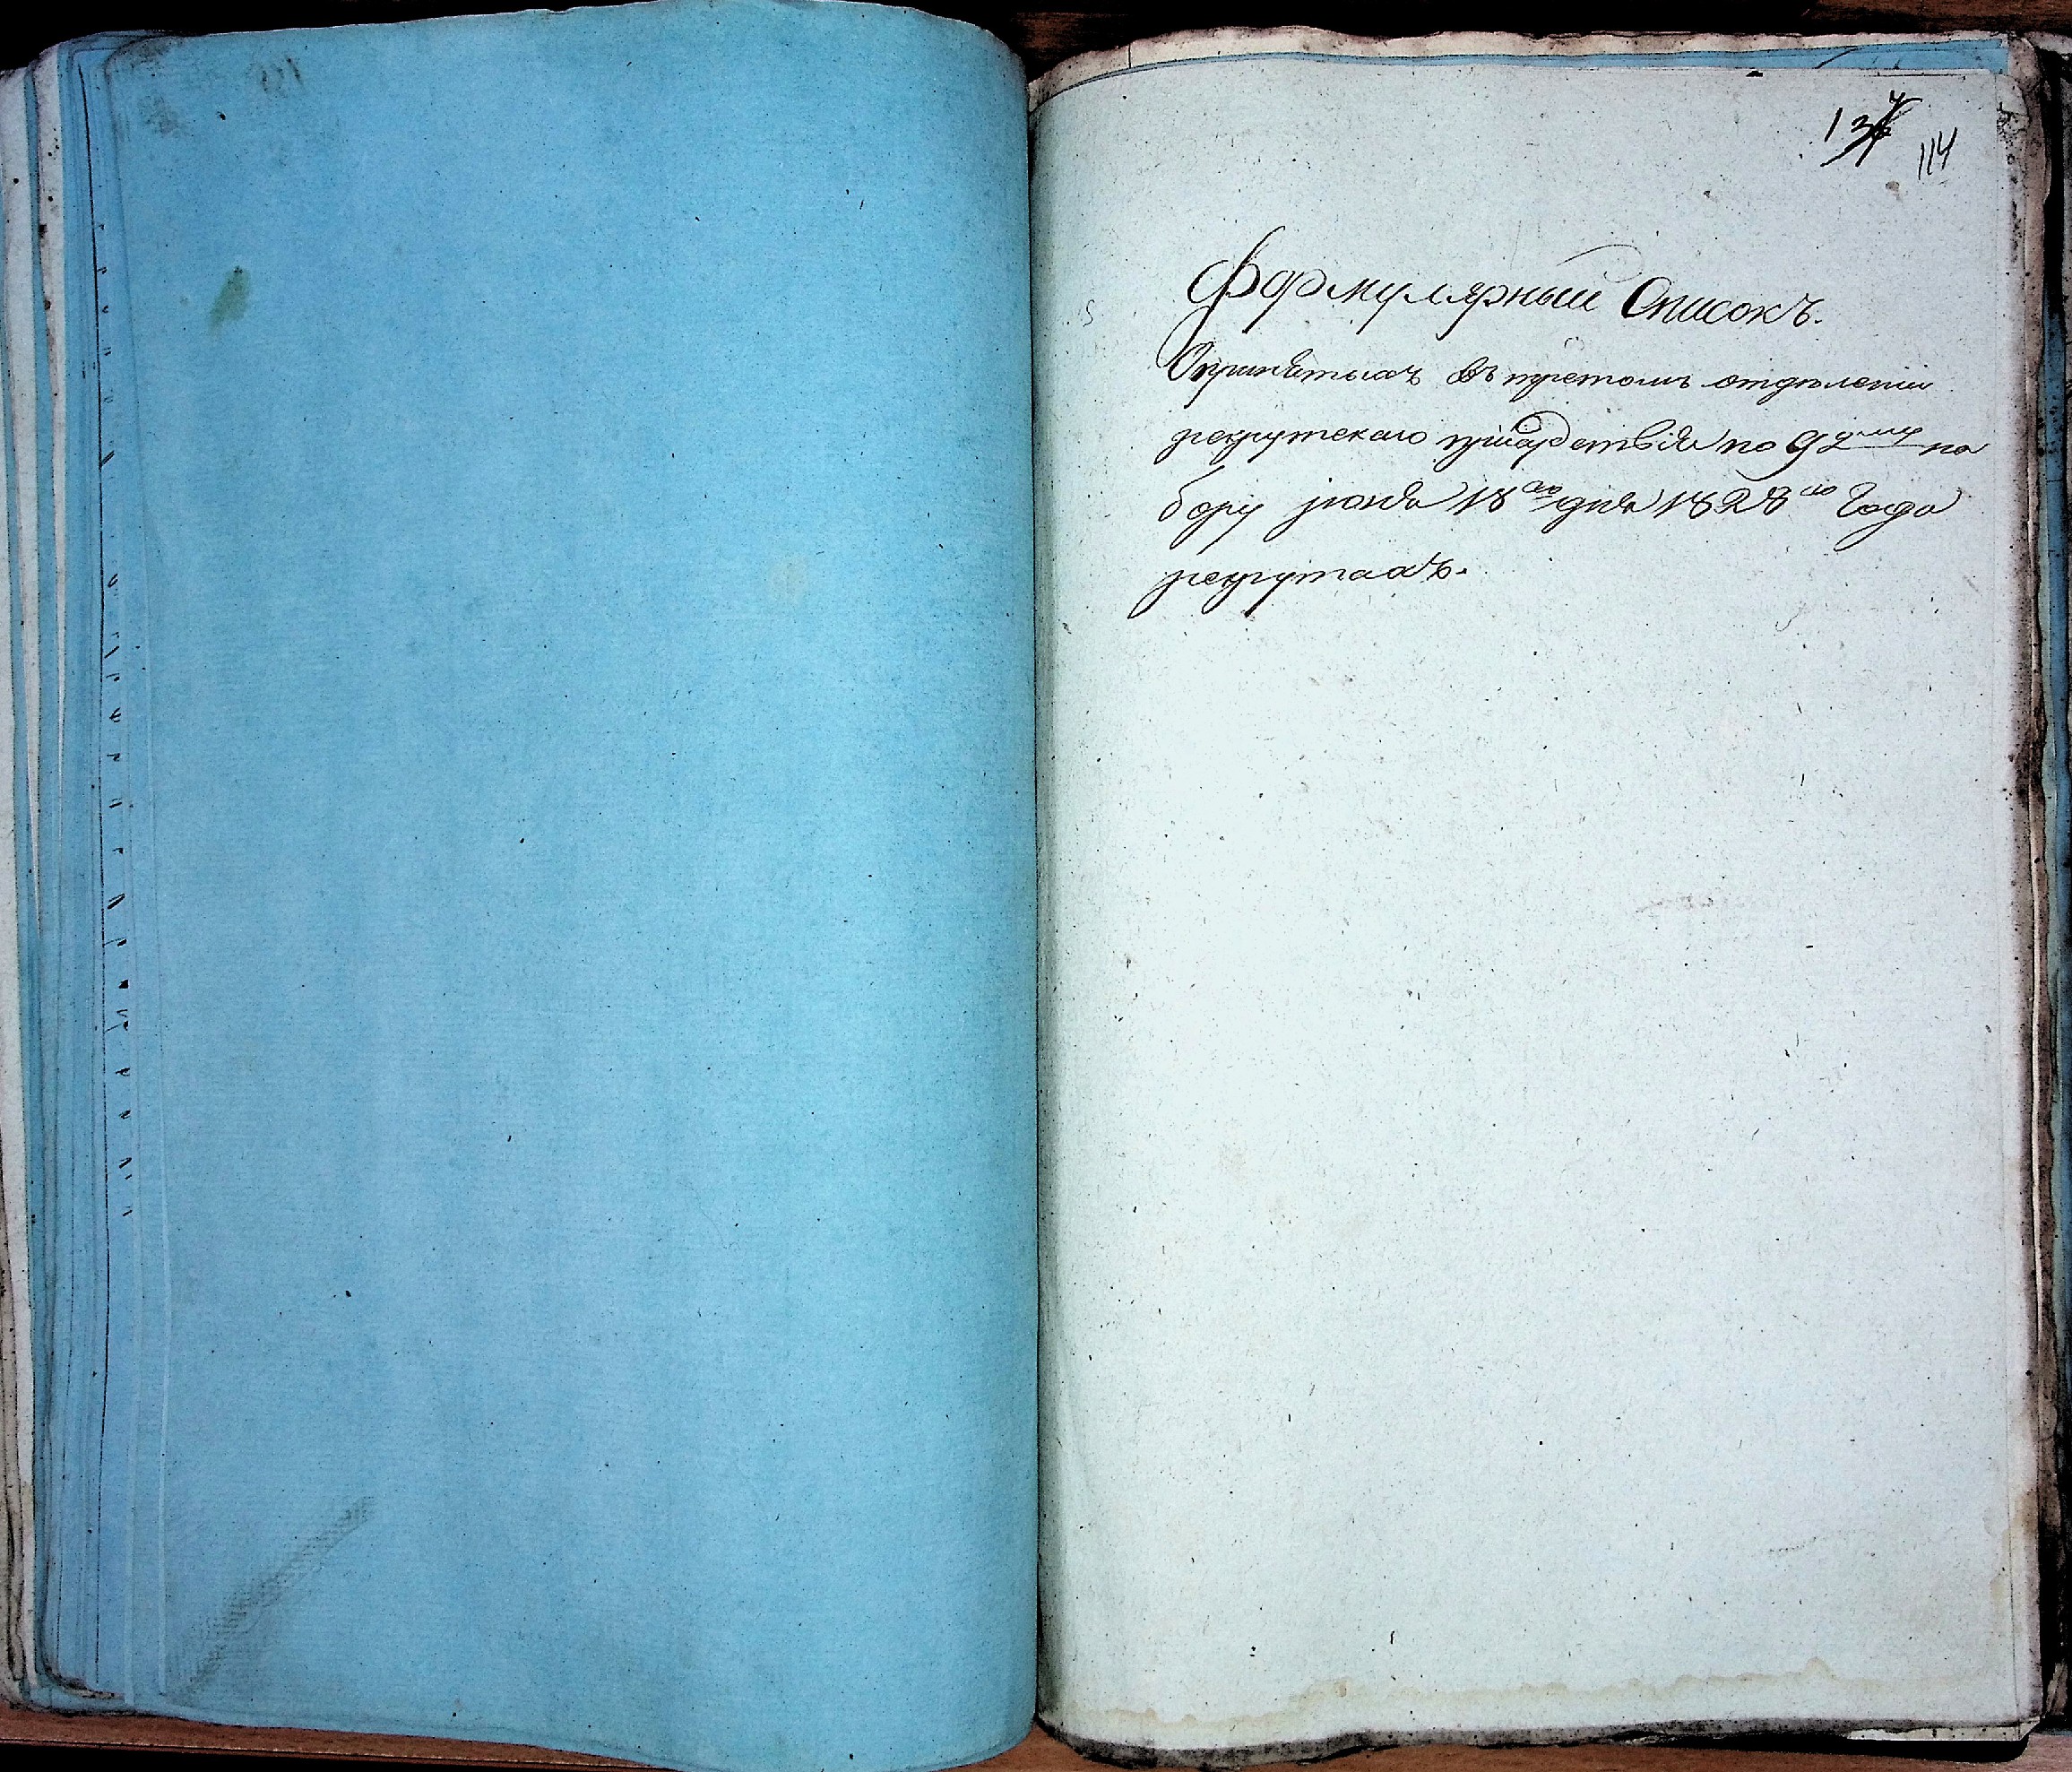 114
Формулярный Списокъ.
Опринятыхъ въ третомъ отделении
рекрутскаго присудствія по 92му на
бору июня 18го дня 1828го Года
рекрутахъ.